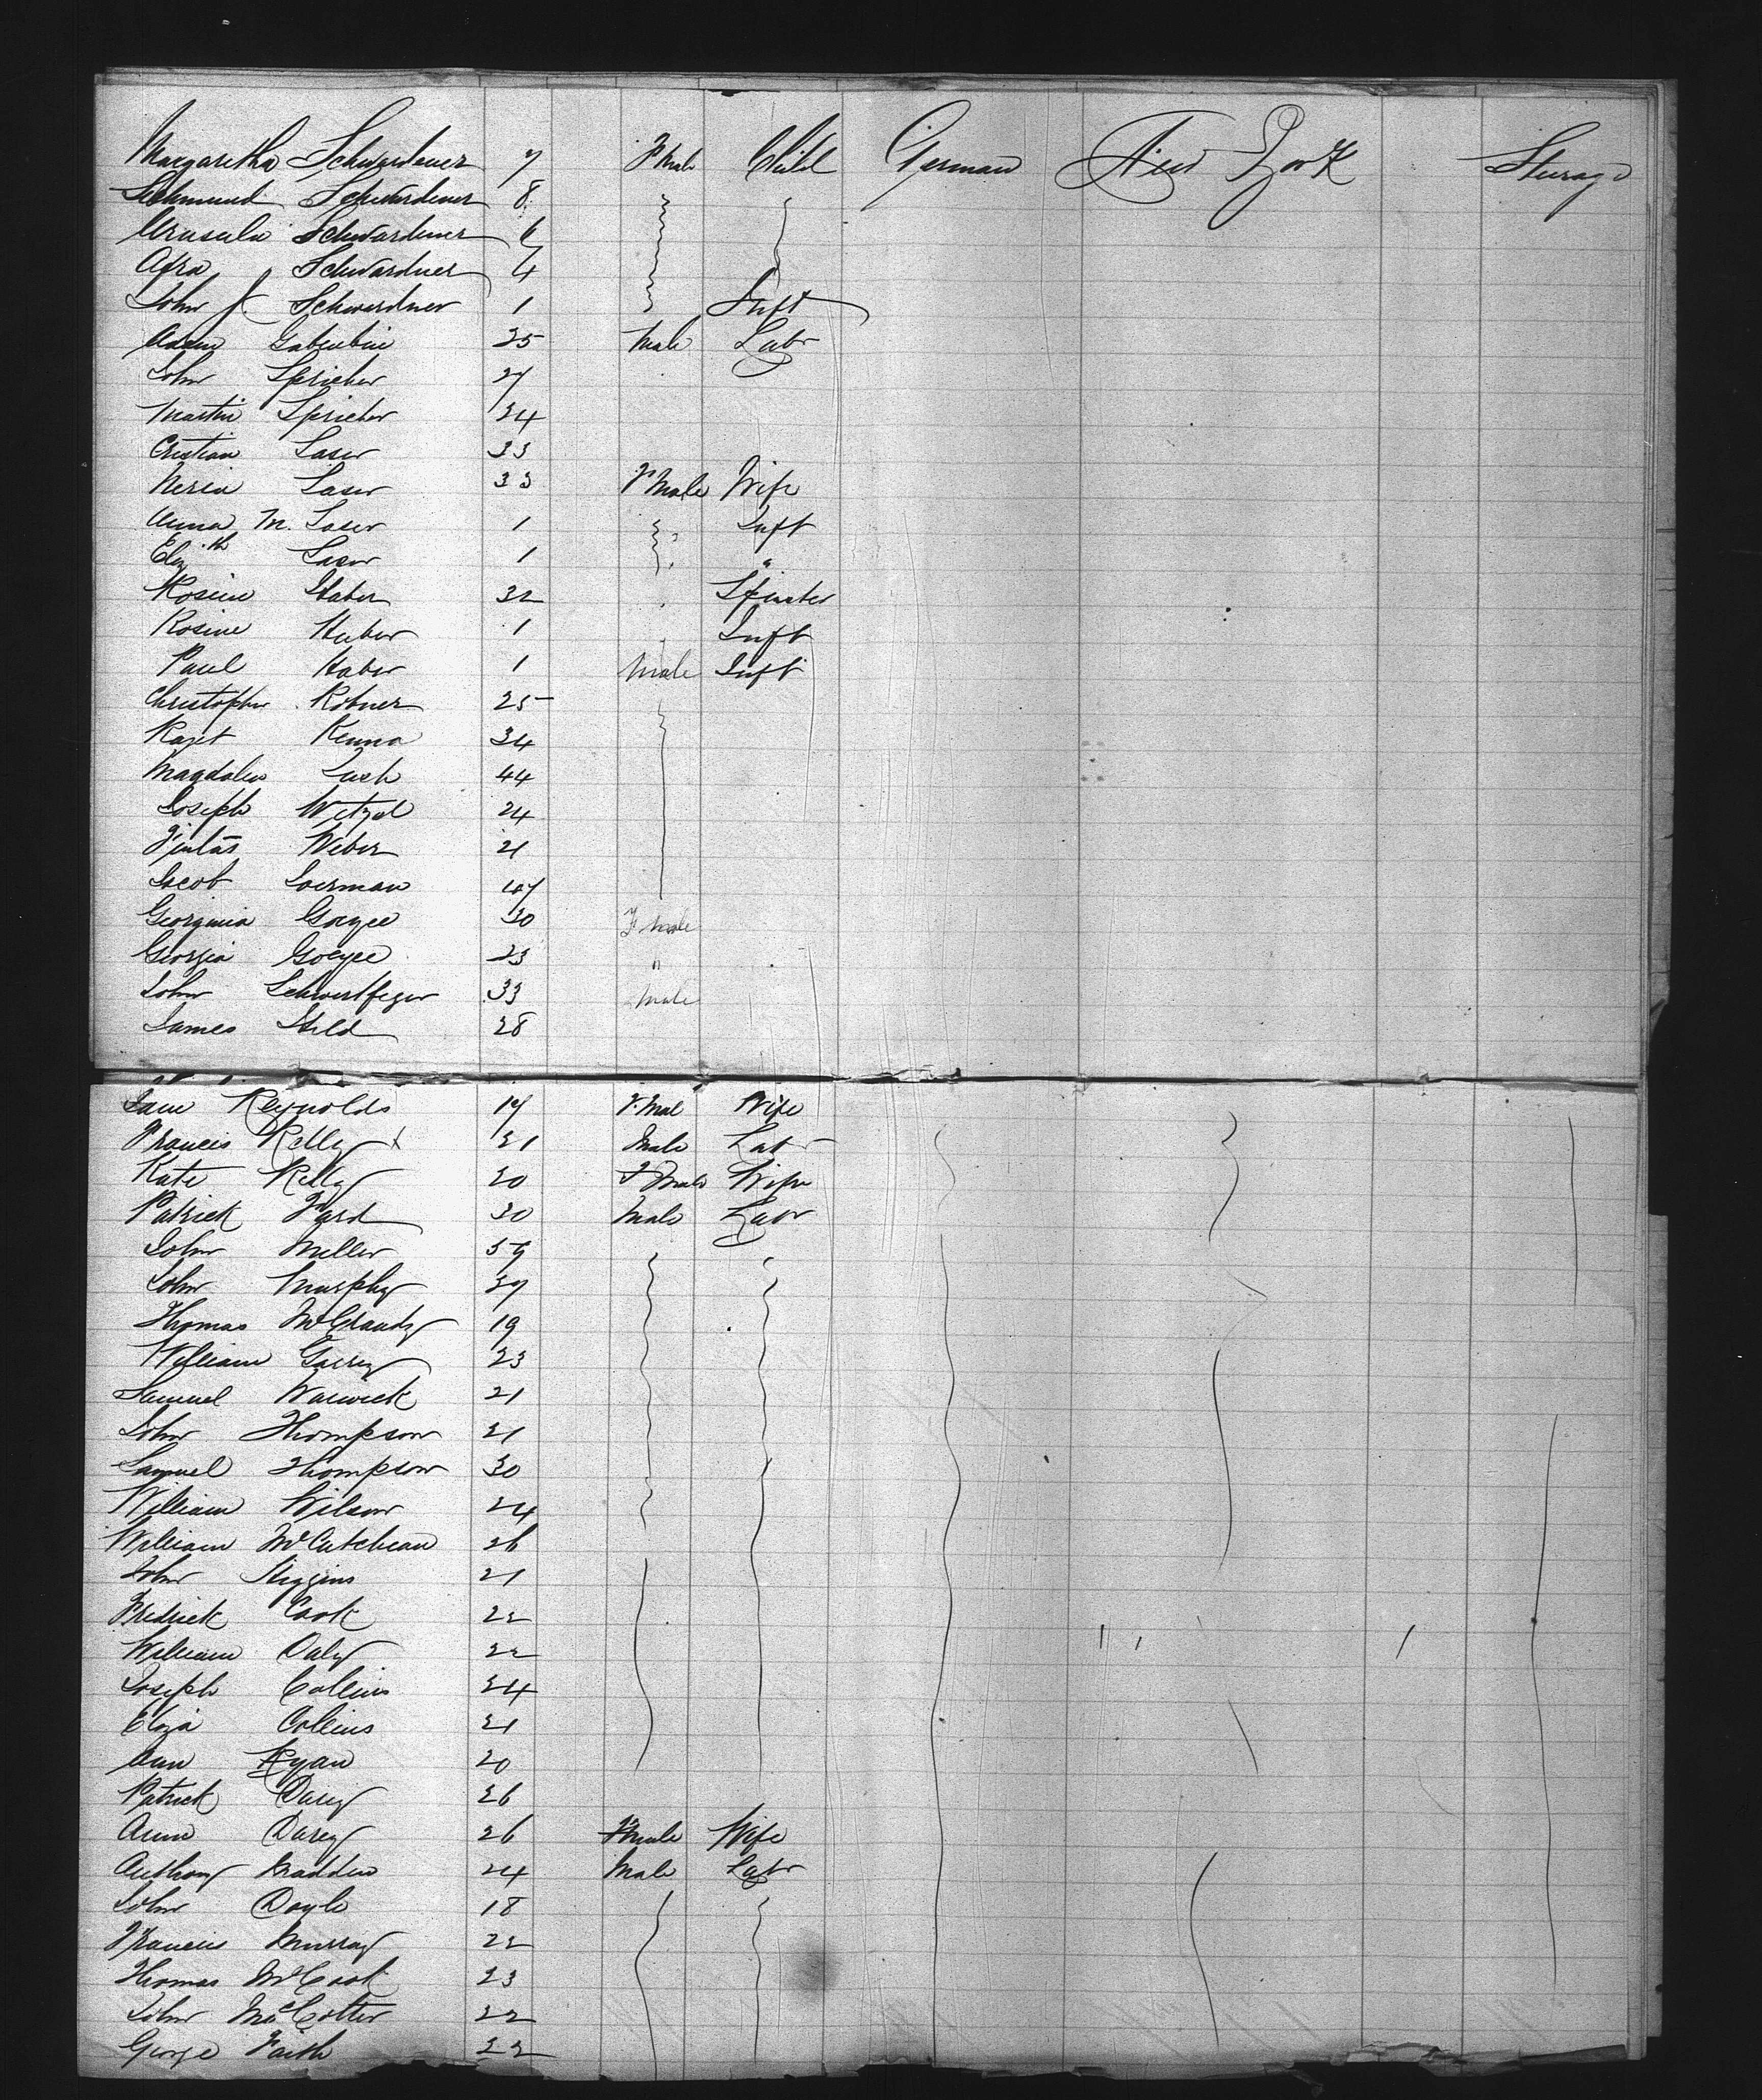 Margaretha Schwardener 7 F Male Child German New York Steerage
Schwardener 8
Ursula Schwardener 6
Afra Schwardner 4
John J. Schwardner 1 Inft
Adam 25 Male Labr
John Spricher 27
Martin Spricher 34
Cristian Laser 33
Laser 33 F Male Wife
Anna M. Laser 1 Inft
Elizth Laser 1 "
Rosine Haber 32 Spinster
Rosine Huber 1 Inft
Paul Haber 1 Male Inft
Christopher Robner 25
Kenna 34
Magdalen Lush 44
Joseph Wetzel 24
Weber 21
Jacob Loerman 47
Georginia Goeyee 30 F Male
Georgia Goeyee 23 "
John Schwertfeger 33 Male
James Held 28
Jane Reynolds 19 F. Mal Wife
Francis Kelly X 21 Male Labr
Kate Kelly 20 F Male Wife
Patrick Ward 30 Male Labr
John Miller 59
John Murphy 37
Thomas 19
William Garry 23
Samuel Warwick 21
John Thompson 21
Samuel Thompson 30
William Wilson 24
William McCutchean 26
John Higgins 21
Fredrick Cook 22
William Daly 22
Joseph Collins 24
Eliza Collins 21
Ann Ryan 20
Patrick Darcy 26
Ann Darcy 26 Fmale Wife
Anthony Madden 24 Male Labr
John Doyle 18
Francis Murray 22
Thomas McCook 23
John McCotter 22
George Faith 22